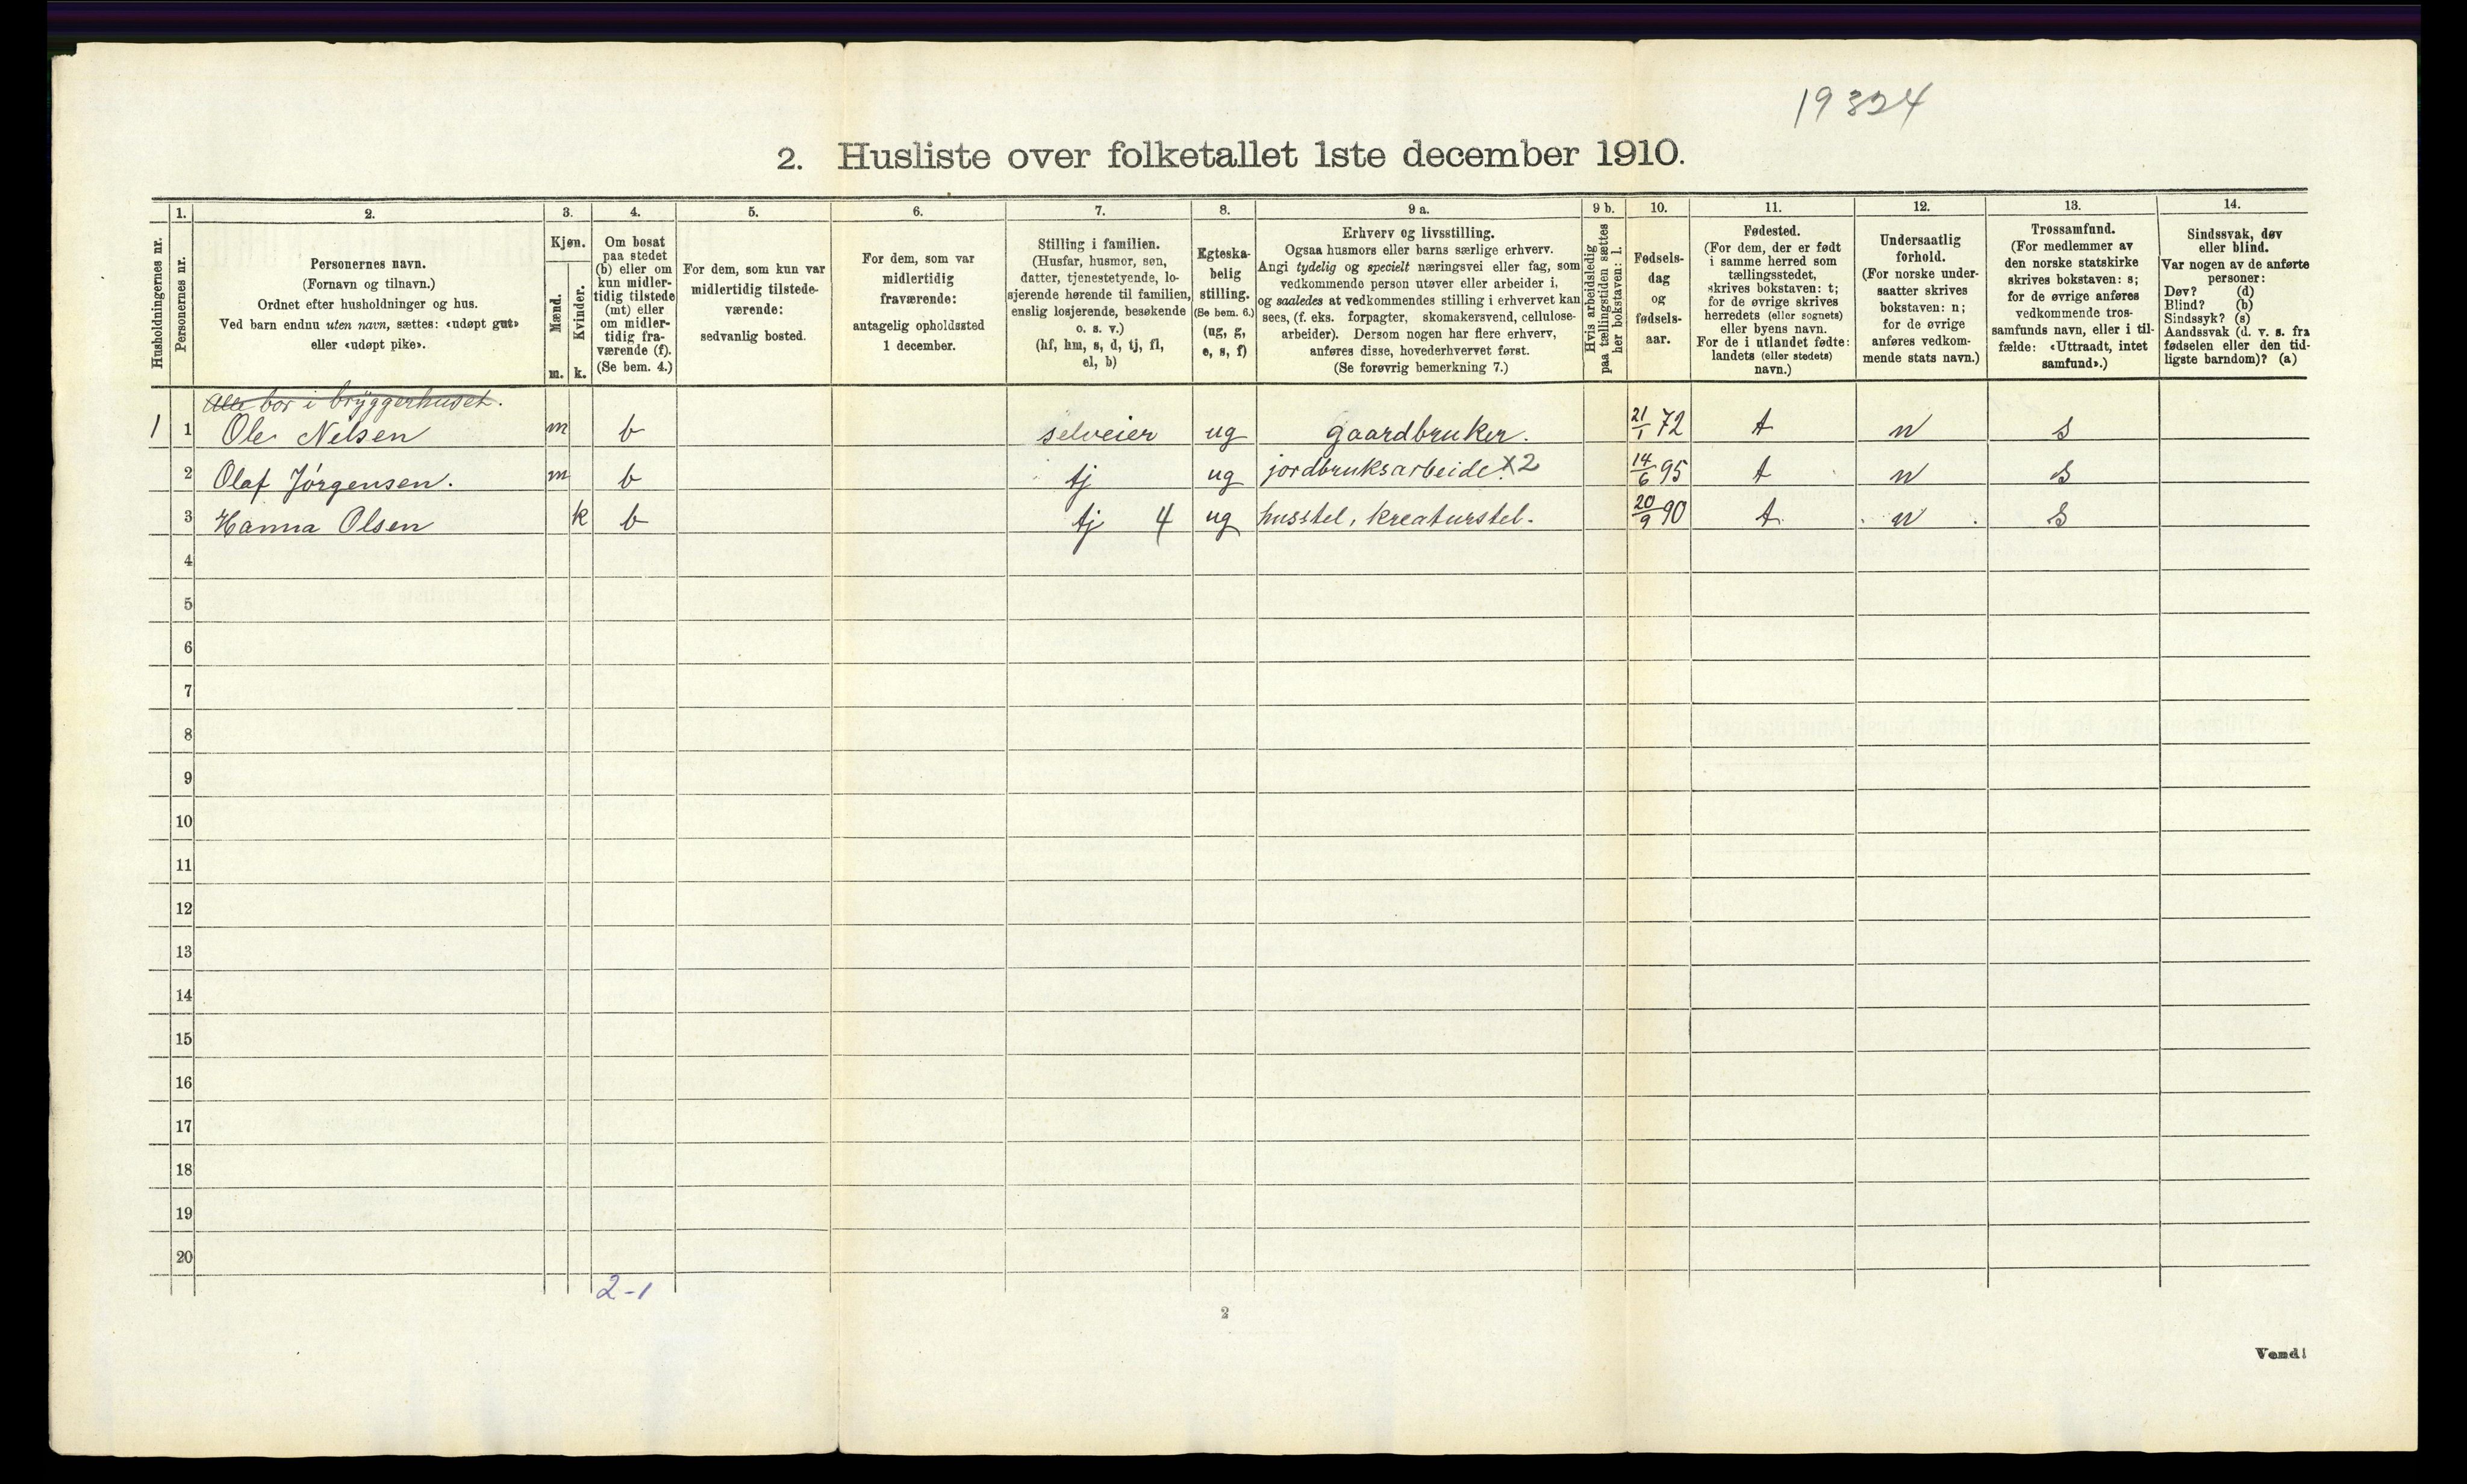 19324
2. Husliste over folketallet 1ste december 1910.
Husholdningernes nr.
1.
Personernes nr.
2.
Personernes navn.
(Fornavn og tilnavn.)
Ordnet efter husholdninger og hus.
Ved barn endnu uten navn, sættes: «udøpt gut»
eller «udøpt pike».
3.
Kjøn.
Mænd.
Kvinder.
m. k.
4.
Om bosat
paa stedet
(b) eller om
kun midler-
tidig tilstede
(mt) eller
om midler-
tidig fra-
værende (f).
(Se bem. 4.)
5.
For dem, som kun var
midlertidig tilstede-
værende:
sedvanlig bosted.
6.
For dem, som var
midlertidig
fraværende:
antagelig opholdssted
1 december.
7.
Stilling i familien.
(Husfar, husmor, søn,
datter, tjenestetyende, lo-
sjerende hørende til familien,
enslig losjerende, besøkende
o. s. v.)
(hf, hm, s, d, tj, fl,
el, b)
8.
Egteska-
belig
stilling.
(Se bem. 6.)
(ug, g,
e, s, f)
9 a.
Erhverv og livsstilling.
Ogsaa husmors eller barns særlige erhverv.
Angi tydelig og specielt næringsvei eller fag, som
vedkommende person utøver eller arbeider i,
og saaledes at vedkommendes stilling i erhvervet kan
sees, (f. eks. forpagter, skomakersvend, cellulose-
arbeider). Dersom nogen har flere erhverv,
anføres disse, hovederhvervet først.
(Se forøvrig bemerkning 7.)
9 b.
Hvis arbeidsledig
paa tællingstiden sættes
her bokstaven: l.
10.
Fødsels-
dag
og
fødsels-
aar.
11.
Fødested.
(For dem, der er født
i samme herred som
tællingsstedet,
skrives bokstaven: t;
for de øvrige skrives
herredets (eller sognets)
eller byens navn.
For de i utlandet fødte:
landets (eller stedets)
navn.)
12.
Undersaatlig
forhold.
(For norske under-
saatter skrives
bokstaven: n;
for de øvrige
anføres vedkom-
mende stats navn.)
13.
Trossamfund.
(For medlemmer av
den norske statskirke
skrives bokstaven: s;
for de øvrige anføres
vedkommende tros-
samfunds navn, eller i til-
fælde: «Uttraadt, intet
samfund».)
14.
Sindssvak, døv
eller blind.
Var nogen av de anførte
personer:
Døv? (d)
Blind? (b)
Sindssyk? (s)
Aandssvak (d. v. s. fra
fødselen eller den tid-
ligste barndom)? (a)
Alle bor i bryggerhuset.
1 1 Ole Nelsen m b selveier ug gaardbruker. 21/1 72 t n s
2 Olaf Jörgensen. m b tj ug jordbruksarbeide. x2 14/6 95 t n s
3 Hanna Olsen k b tj 4 ug husstel, kreaturstel. 20/9 90 t n s
4
5
6
7
8
9
10
11
12
13
14
15
16
17
18
19
20
2-1
2
Vend!